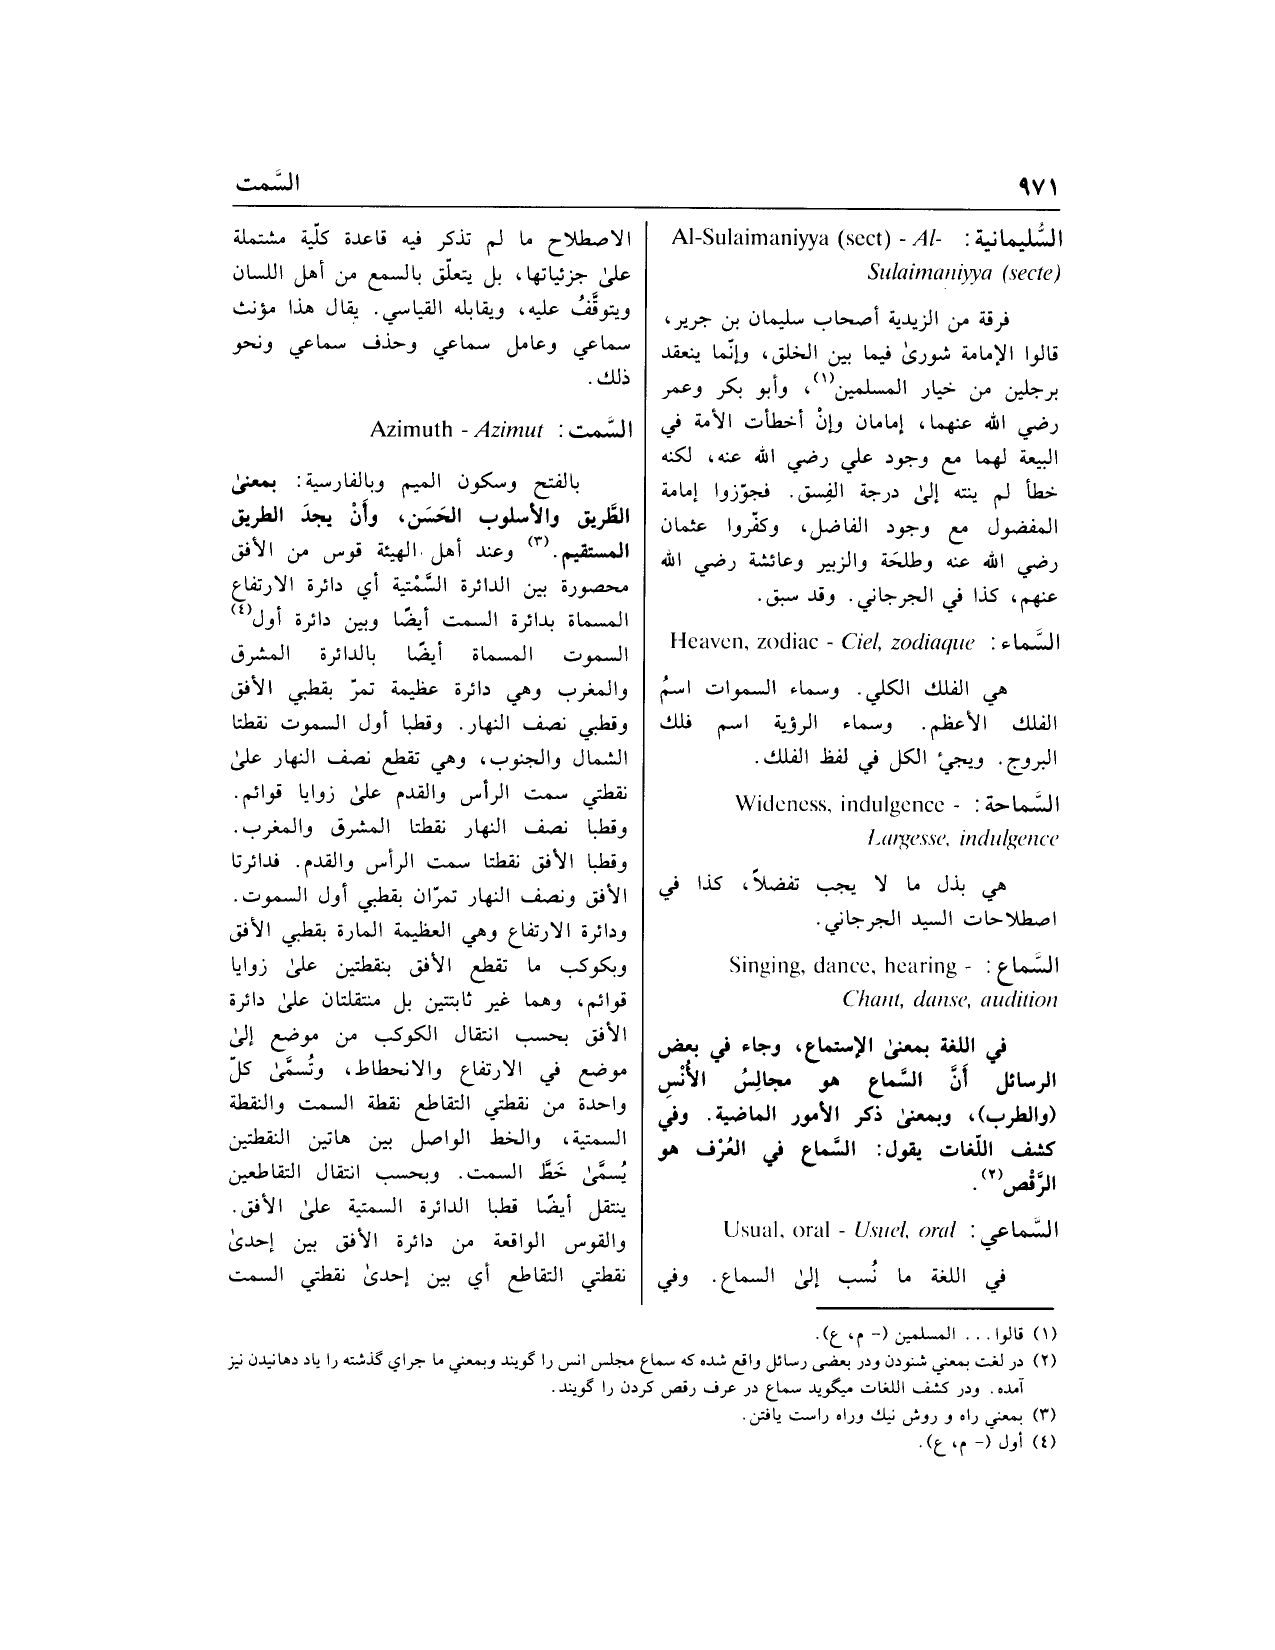 ٩٧١
السَّمت
السُّليمانية: Al-Sulaimaniyya (sect) - Al-
Sulaimaniyya (secte)
فرقة من الزيدية أصحاب سليمان بن جرير،
قالوا الإمامة شورىٰ فيما بين الخلق، وإنّما ينعقد
برجلين من خيار المسلمين(١)، وأبو بكر وعمر
رضي الله عنهما، إمامان وإنْ أخطأت الأمة في
البيعة لهما مع وجود علي رضي الله عنه، لكنه
خطأ لم ينته إلىٰ درجة الفِسق. فجوّزوا إمامة
المفضول مع وجود الفاضل، وكفّروا عثمان
رضي الله عنه وطلحَة والزبير وعائشة رضي الله
عنهم، كذا في الجرجاني. وقد سبق.
السَّماء: Heaven, zodiac - Ciel, zodiaque
هي الفلك الكلي. وسماء السموات اسمُ
الفلك الأعظم. وسماء الرؤية اسم فلك
البروج. ويجئ الكل في لفظ الفلك.
السَّماحة: Wideness, indulgence -
Largesse, indulgence
هي بذل ما لا يجب تفضلاً، كذا في
اصطلاحات السيد الجرجاني.
السَّماع: Singing, dance, hearing -
Chant, danse, audition
في اللغة بمعنىٰ الإستماع، وجاء في بعض
الرسائل أَنَّ السَّماع هو مجالِسُ الأُنْسِ
(والطرب)، وبمعنىٰ ذكر الأمور الماضية. وفي
كشف اللّغات يقول: السَّماع في العُرْف هو
الرَّقْص(٢).
السَّماعي: Usual, oral - Usuel, oral
في اللغة ما نُسب إلىٰ السماع. وفي
الاصطلاح ما لم تذكر فيه قاعدة كلّية مشتملة
علىٰ جزئياتها، بل يتعلّق بالسمع من أهل اللسان
ويتوقَّفُ عليه، ويقابله القياسي. يقال هذا مؤنث
سماعي وعامل سماعي وحذف سماعي ونحو
ذلك.
السَّمت: Azimuth - Azimut
بالفتح وسكون الميم وبالفارسية: بمعنىٰ
الطَّريق والأسلوب الحَسَن، وأَنْ يجدَ الطريق
المستقيم.(٣) وعند أهل الهيئة قوس من الأفق
محصورة بين الدائرة السَّمْتية أي دائرة الارتفاع
المسماة بدائرة السمت أيضًا وبين دائرة أول(٤)
السموت المسماة أيضًا بالدائرة المشرق
والمغرب وهي دائرة عظيمة تمرّ بقطبي الأفق
وقطبي نصف النهار. وقطبا أول السموت نقطتا
الشمال والجنوب، وهي تقطع نصف النهار علىٰ
نقطتي سمت الرأس والقدم علىٰ زوايا قوائم.
وقطبا نصف النهار نقطتا المشرق والمغرب.
وقطبا الأفق نقطتا سمت الرأس والقدم. فدائرتا
الأفق ونصف النهار تمرّان بقطبي أول السموت.
ودائرة الارتفاع وهي العظيمة المارة بقطبي الأفق
وبكوكب ما تقطع الأفق بنقطتين علىٰ زوايا
قوائم، وهما غير ثابتتين بل منتقلتان علىٰ دائرة
الأفق بحسب انتقال الكوكب من موضع إلىٰ
موضع في الارتفاع والانحطاط، وتُسمَّىٰ كلّ
واحدة من نقطتي التقاطع نقطة السمت والنقطة
السمتية، والخط الواصل بين هاتين النقطتين
يُسمَّىٰ خَطَّ السمت. وبحسب انتقال التقاطعين
ينتقل أيضًا قطبا الدائرة السمتية علىٰ الأفق.
والقوس الواقعة من دائرة الأفق بين إحدىٰ
نقطتي التقاطع أي بين إحدىٰ نقطتي السمت
(١) قالوا... المسلمين (- م، ع).
(٢) در لغت بمعني شنودن ودر بعضى رسائل واقع شده كه سماع مجلس انس را گويند وبمعني ما جراي گذشته را ياد دهانيدن نيز
آمده. ودر كشف اللغات ميگويد سماع در عرف رقص كردن را گويند.
(٣) بمعني راه و روش نيك وراه راست يافتن.
(٤) أول (- م، ع).